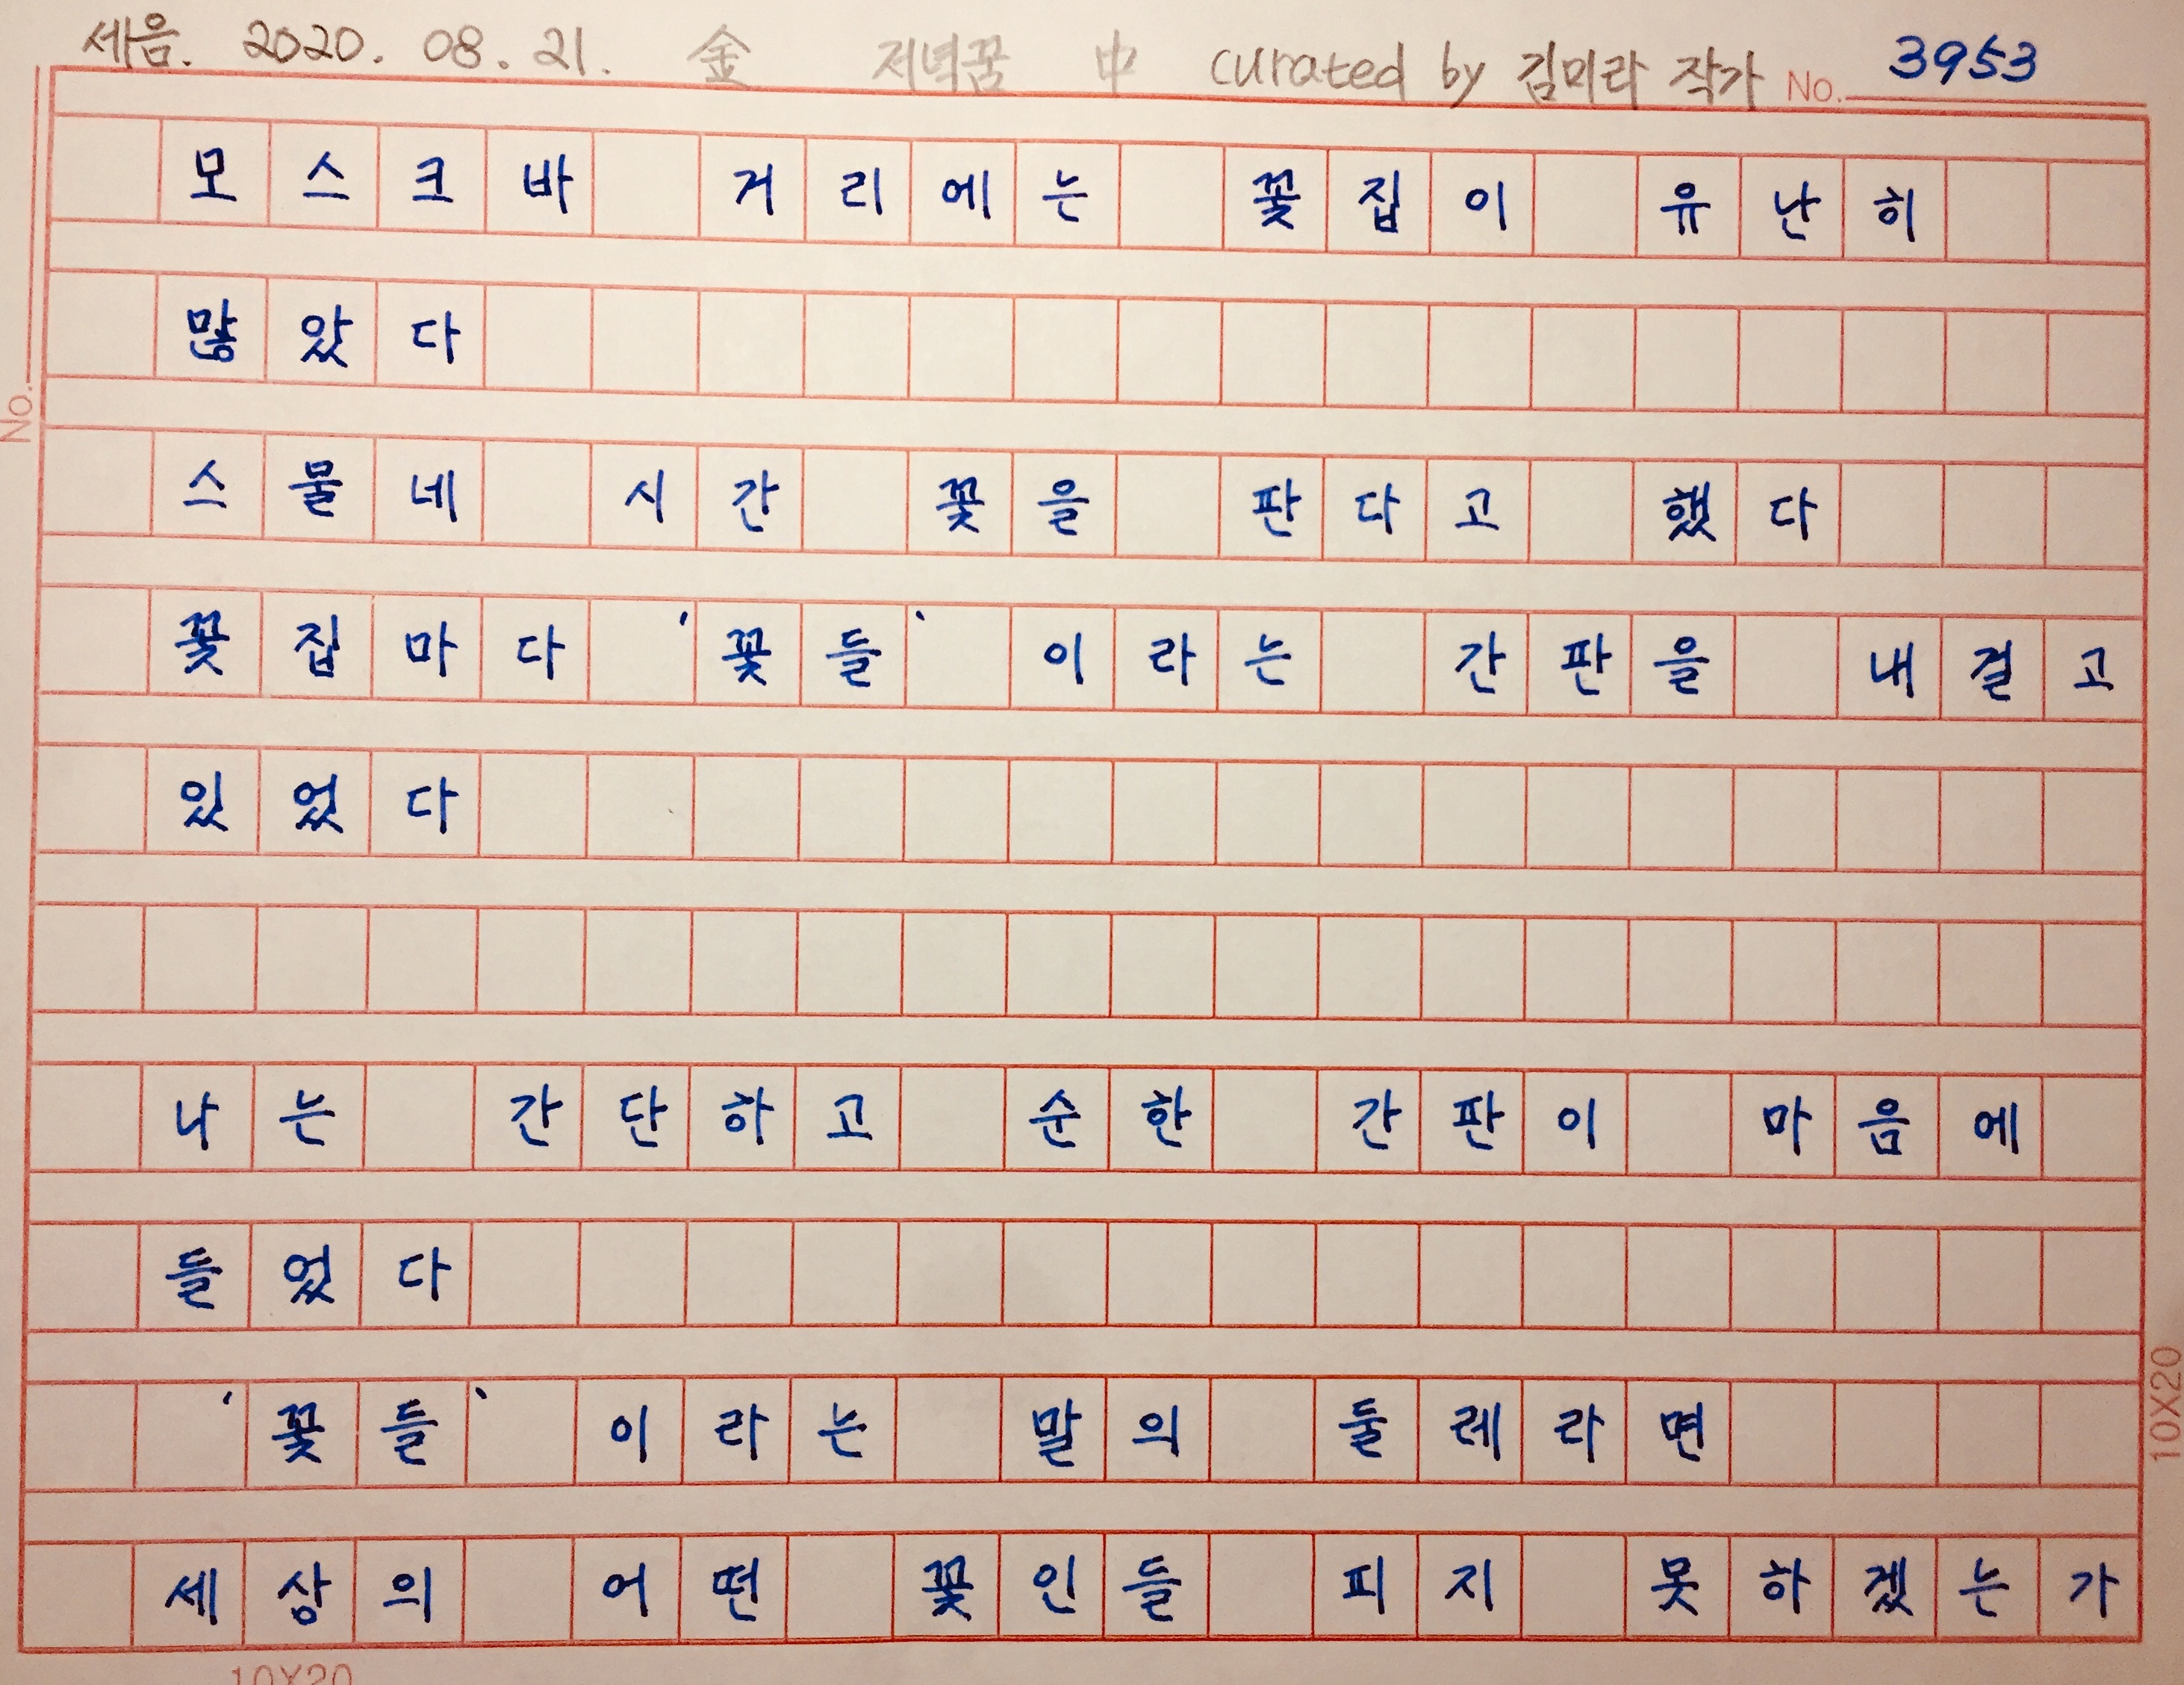 세음. 2020. 08. 21. 金 저녁꿈 中 curated by 김미라 작가 No. 3953
모스크바 거리에는 꽃집이 유난히
많았다
No.
스물네 시간 꽃을 판다고 했다
꽃집마다 '꽃들'이라는 간판을 내걸고
있었다
나는 간단하고 순한 간판이 마음에
들었다
'꽃들'이라는 말의 둘레라면
10X20
세상의 어떤 꽃인들 피지 못하겠는가
10X20